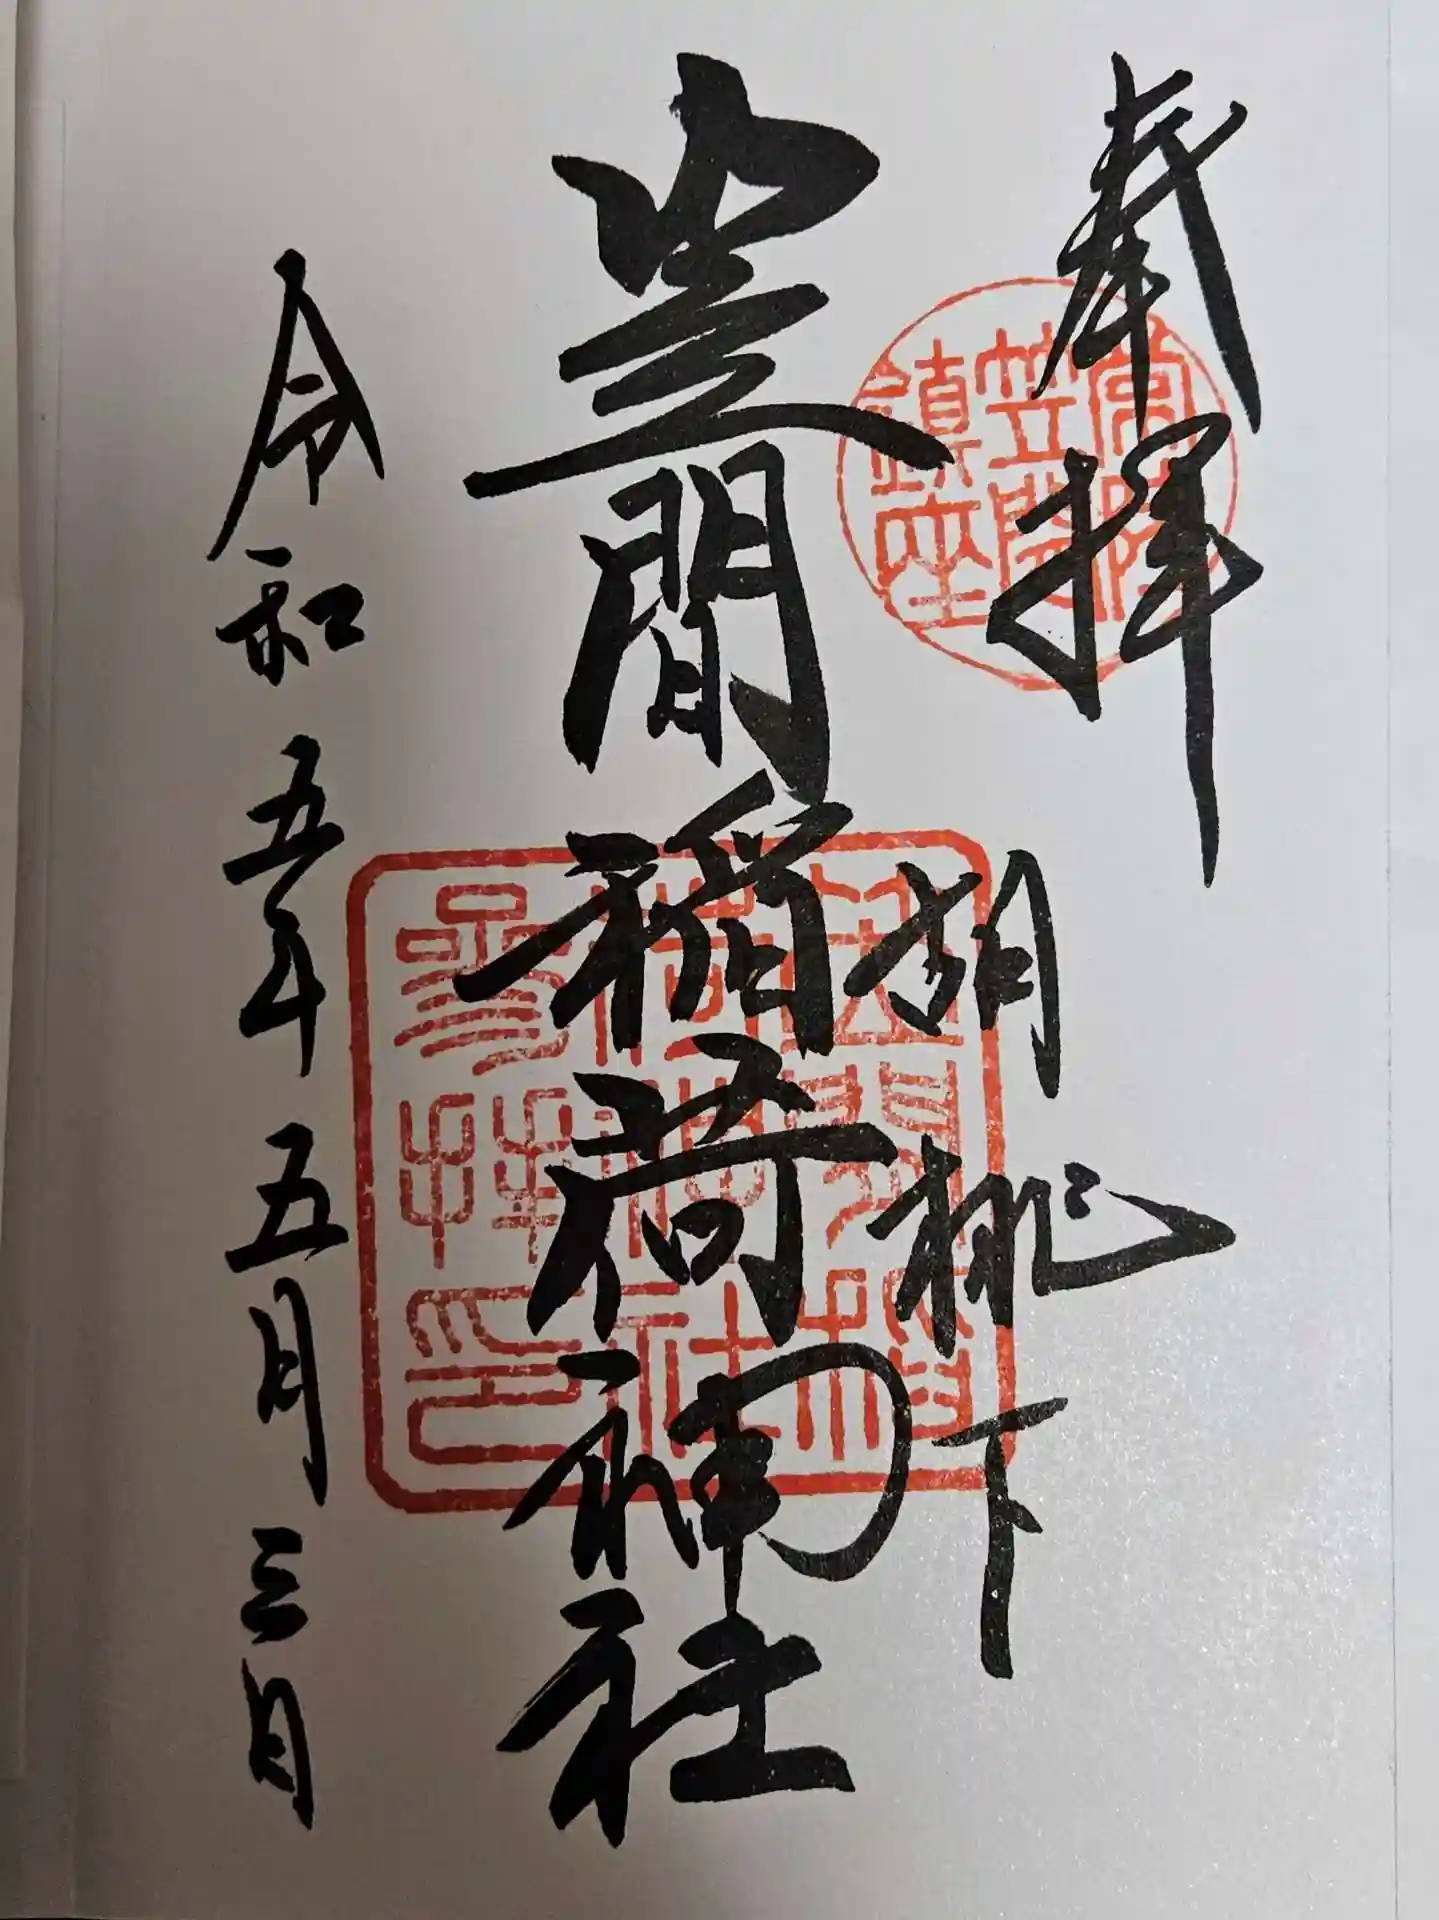 奉拝
常陸
笠間
鎮座
胡桃下
笠間稲荷神社
笠間稲
荷神社
参拝印
令和五年五月三日